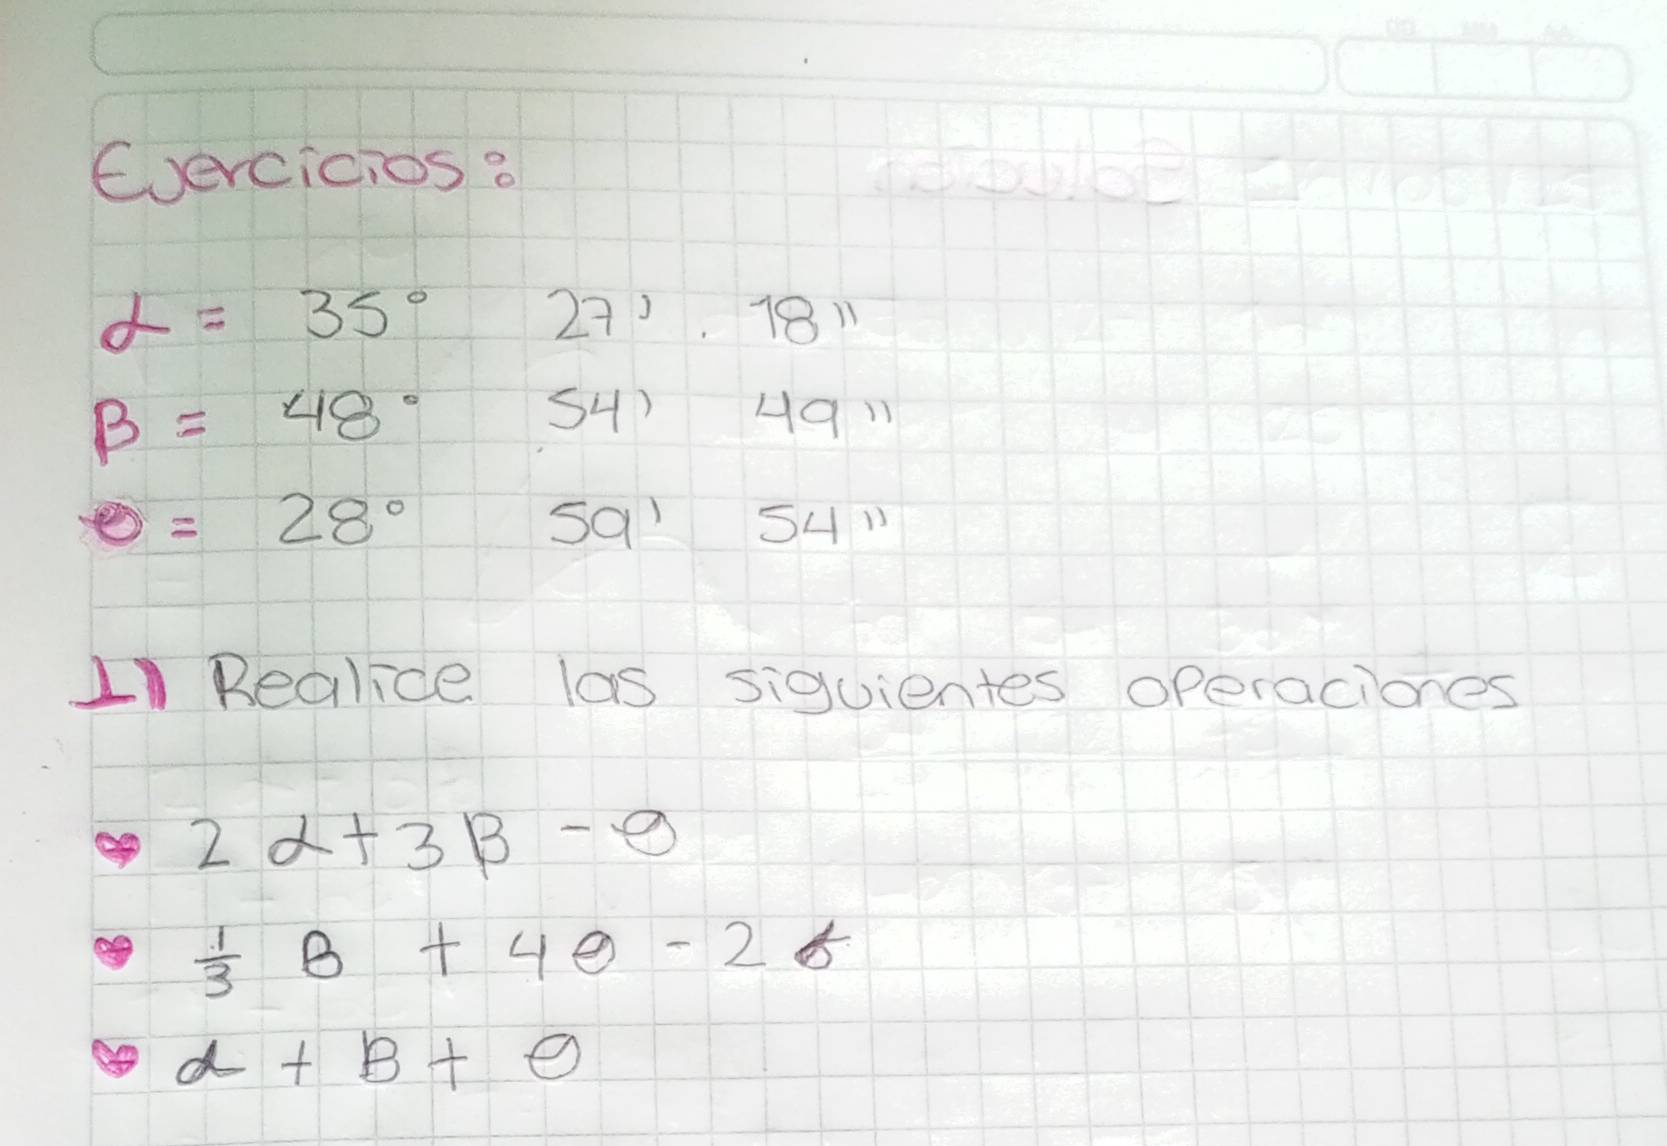 Ejercicios:
α = 35° 27' 18"
β = 48° 54' 49"
θ = 28° 59' 54"
1) Realice las siguientes operaciones
2α + 3β - θ
1/3 β + 4θ - 2
α + β + θ